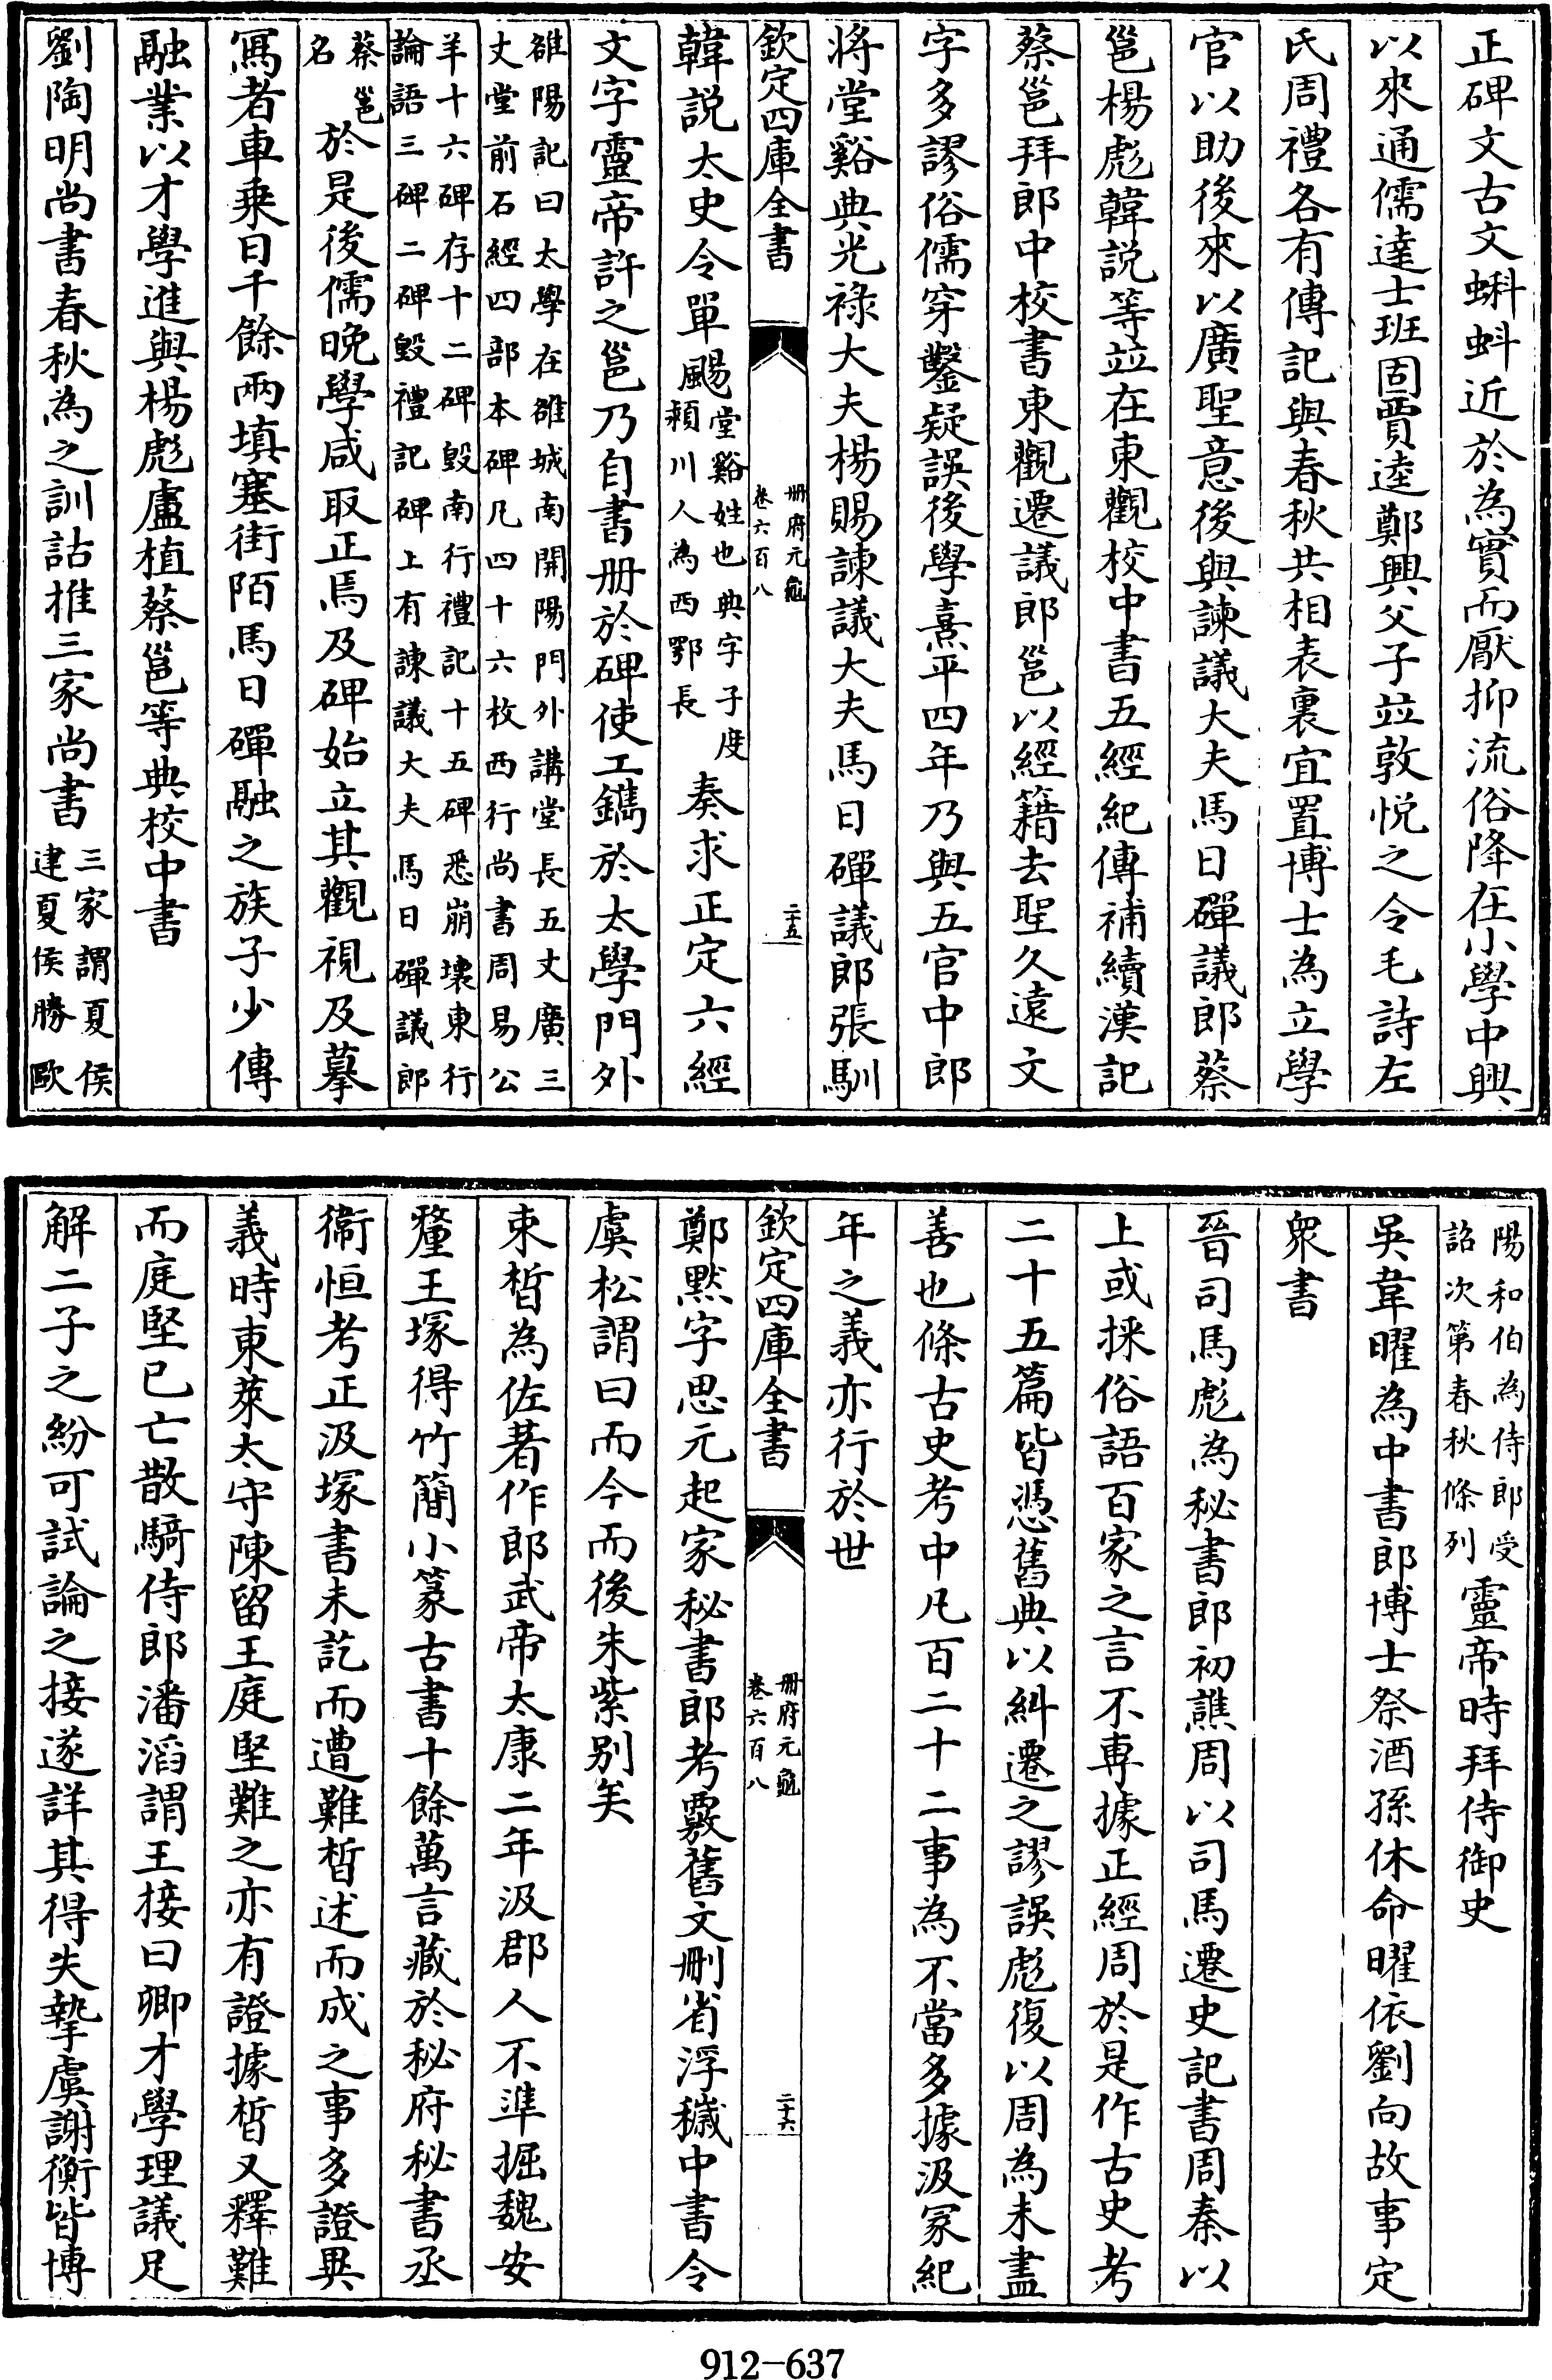 正碑文古文蝌蚪近於為實而厭抑流俗降在小學中興
以來通儒達士班固賈逵鄭興父子竝敦悅之令毛詩左
氏周禮各有傳記與春秋共相表裏宜置博士為立學
官以助後來以廣聖意後與諫議大夫馬日磾議郎蔡
邕楊彪韓説等竝在東觀校中書五經紀傳補續漢記
蔡邕拜郎中校書東觀遷議郎邕以經籍去聖久遠文
字多謬俗儒穿鑿疑誤後學熹平四年乃與五官中郎
將堂谿典光祿大夫楊賜諫議大夫馬日磾議郎張馴
欽定四庫全書
冊府元龜
卷六百八
二十五
韓説太史令單颺堂谿姓也典字子度潁川人為西鄂長奏求正定六經
文字靈帝許之邕乃自書冊於碑使工鐫於太學門外
雒陽記曰太學在雒城南開陽門外講堂長五丈廣三
丈堂前石經四部本碑凡四十六枚西行尚書周易公
羊十六碑存十二碑毀南行禮記十五碑悉崩壞東行
論語三碑二碑毀禮記碑上有諫議大夫馬日磾議郎
蔡邕名於是後儒晚學咸取正焉及碑始立其觀視及摹
寫者車乗日千餘兩填塞街陌馬日磾融之族子少傳
融業以才學進與楊彪盧植蔡邕等典校中書
劉陶明尚書春秋為之訓詁推三家尚書三家謂夏侯建夏侯勝歐
陽和伯為侍郎受詔次第春秋條列靈帝時拜侍御史
吳韋曜為中書郎博士祭酒孫休命曜依劉向故事定
衆書
晉司馬彪為秘書郎初譙周以司馬遷史記書周秦以
上或採俗語百家之言不専據正經周於是作古史考
二十五篇皆憑舊典以糾遷之謬誤彪復以周為未盡
善也條古史考中凡百二十二事為不當多據汲冢紀
年之義亦行於世
欽定四庫全書
冊府元龜
卷六百八
二十六
鄭黙字思元起家秘書郎考覈舊文刪省浮穢中書令
虞松謂曰而今而後朱紫别矣
束晳為佐著作郎武帝太康二年汲郡人不準掘魏安
釐王塚得竹簡小篆古書十餘萬言藏於秘府秘書丞
衞恒考正汲塚書未訖而遭難晳述而成之事多證異
義時東萊太守陳留王庭堅難之亦有證據晳又釋難
而庭堅已亡散騎侍郎潘滔謂王接曰卿才學理議足
解二子之紛可試論之接遂詳其得失摯虞謝衡皆博
912-637